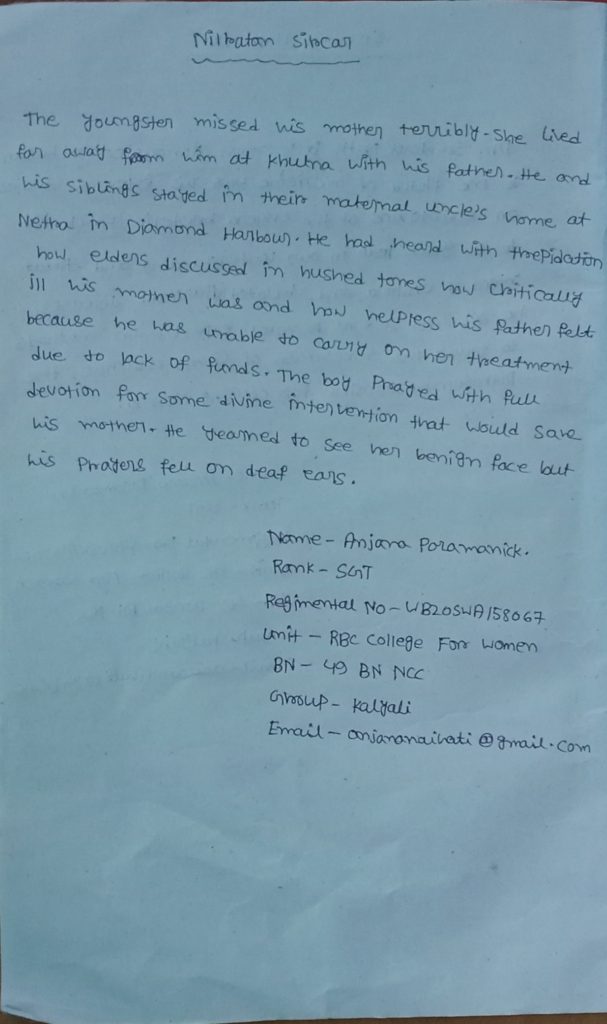 Nilratan Sircar
The youngster missed his mother terribly. She lived
far away from him at Khulna with his father. He and
his siblings stayed in their maternal uncle's home at
Netra in Diamond Harbour. He had heard with trepidation
how elders discussed in hushed tones how critically
ill his mother was and how helpless his father felt
because he was unable to carry on her treatment
due to lack of funds. The boy Prayed with full
devotion for some divine intervention that would save
his mother. He yearned to see her benign face but
his Prayers fell on deaf ears.
Name - Anjana Paramanick.
Rank - SGT
Regimental No - WB20SWA158067
Unit - RBC College For Women
BN - 49 BN NCC
Group - Kalyali
Email - anjananaihati@gmail.com